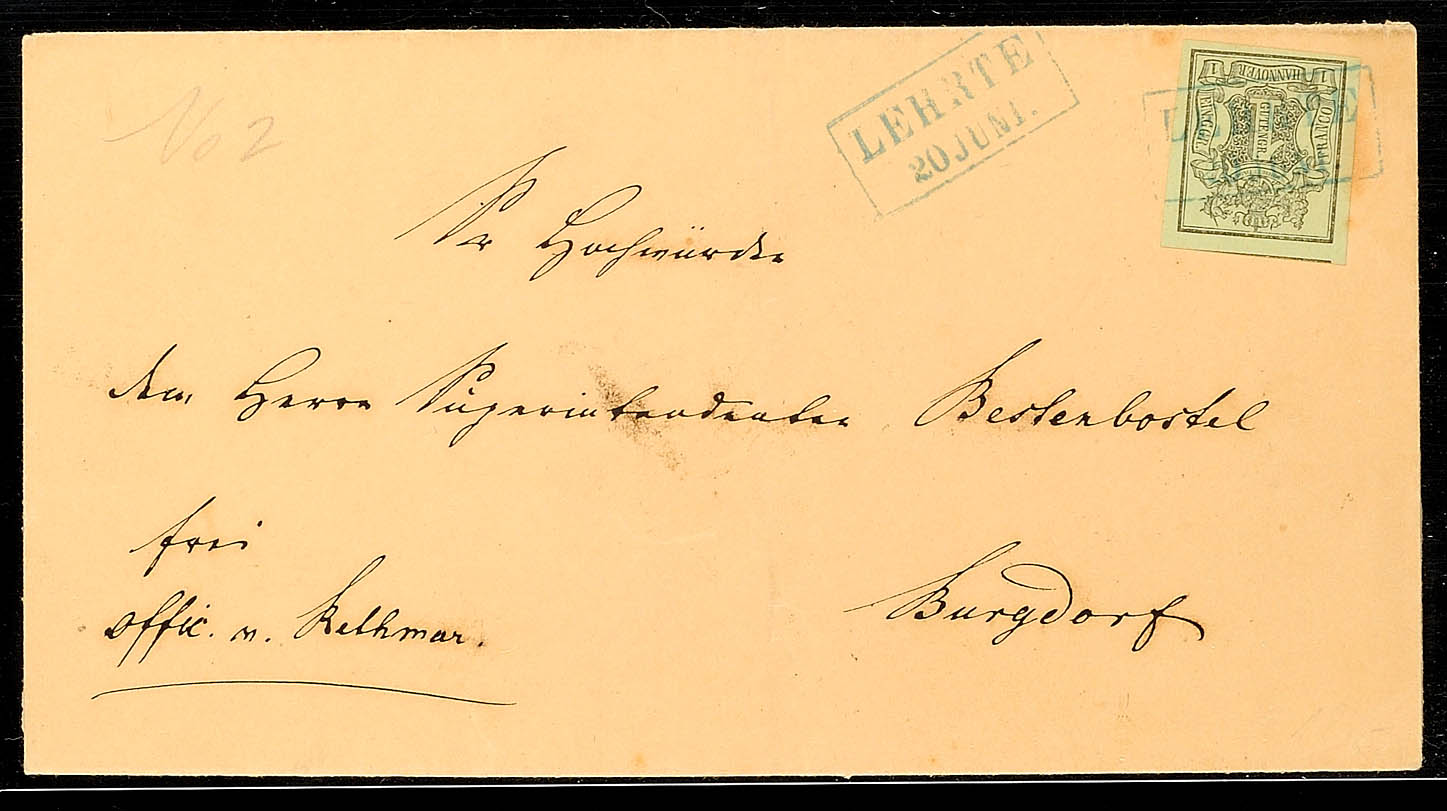 No 2
LEHRTE
20 JUNI.
LEHRTE
HANNOVER
1 1
EIN GGR.
FRANCO
1
GUTENGR.
Sr Hochwürden
dem Herrn Superintendenten Bestenbostel
frei
offic. v. Rethmar.
Burgdorf